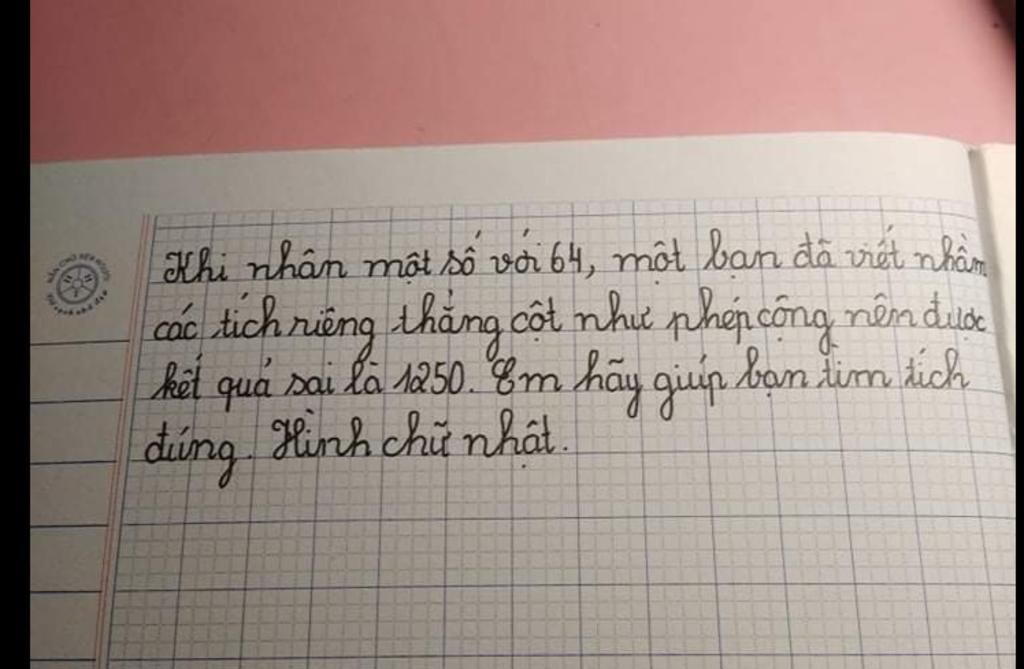 Khi nhân một số với 64, một bạn đã viết nhầm
các tích riêng thẳng cột như phép cộng nên được
kết quả sai là 1250. Em hãy giúp bạn tìm tích
đúng. Hình chữ nhật.